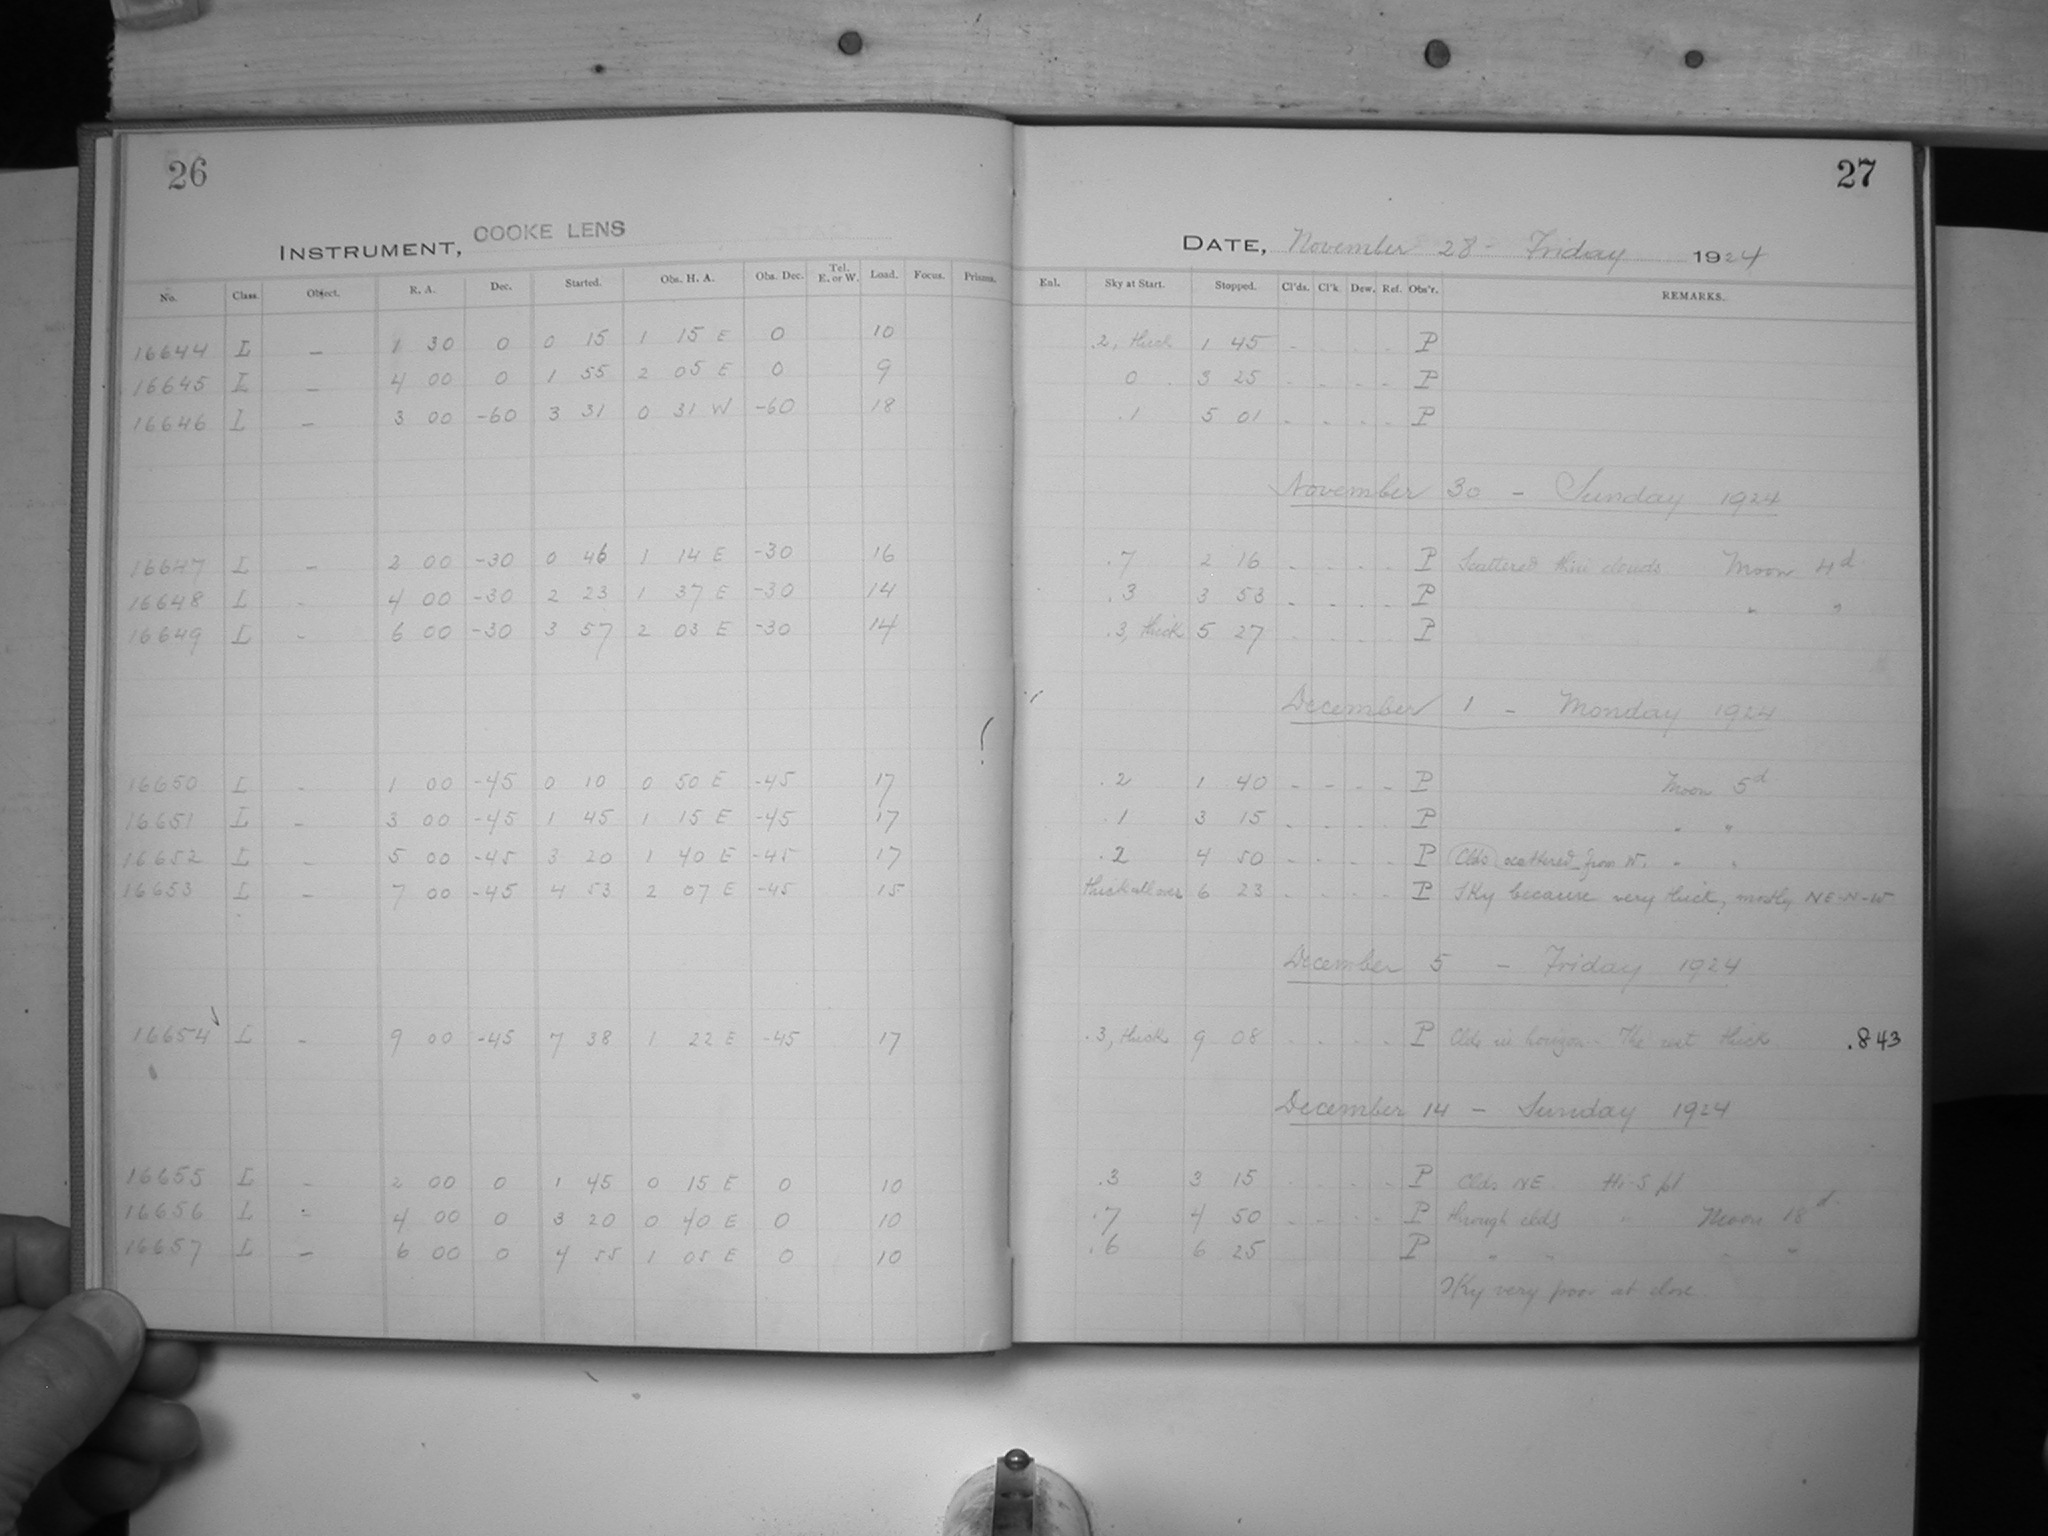 26
27
INSTRUMENT, COOKE LENS
DATE, November 28 - Friday 1924
No. Class. Object. R. A. Dec. Started. Obs. H. A. Obs. Dec. Tel. E. or W. Load. Focus. Prisms. Enl. Sky at Start. Stopped. Cl'ds. Cl'k. Dew. Ref. Obs'r. REMARKS.
16644 L - 1 30 0 0 15 1 15 E 0 10 .2, thick 1 45 - - - - P
16645 L - 4 00 0 1 55 2 05 E 0 9 0 3 25 - - - - P
16646 L - 3 00 -60 3 31 0 31 W -60 18 .1 5 01 - - - - P
November 30 - Sunday 1924
16647 L - 2 00 -30 0 46 1 14 E -30 16 .7 2 16 - - - - P Scattered thin clouds Moon 4d
16648 L - 4 00 -30 2 23 1 37 E -30 14 .3 3 53 - - - - P " "
16649 L - 6 00 -30 3 57 2 03 E -30 14 .3, thick 5 27 - - - - P
December 1 - Monday 1924
16650 L - 1 00 -45 0 10 0 50 E -45 17 .2 1 40 - - - - P Moon 5d
16651 L - 3 00 -45 1 45 1 15 E -45 17 .1 3 15 - - - - P " "
16652 L - 5 00 -45 3 20 1 40 E -45 17 .2 4 50 - - - - P Clds scattered from W. " "
16653 L - 7 00 -45 4 53 2 07 E -45 15 thick all over 6 23 - - - - P Sky because very thick, mostly NE-N-W
December 5 - Friday 1924
16654 L - 9 00 -45 7 38 1 22 E -45 17 .3, thick 9 08 - - - - P Clds in horizon - The rest thick .843
December 14 - Sunday 1924
16655 L - 2 00 0 1 45 0 15 E 0 10 .3 3 15 - - - - P Clds NE.
16656 L - 4 00 0 3 20 0 40 E 0 10 .7 4 50 - - - - P through clds " Moon 18d
16657 L - 6 00 0 4 55 1 05 E 0 10 .6 6 25 P " " " "
Sky very poor at close